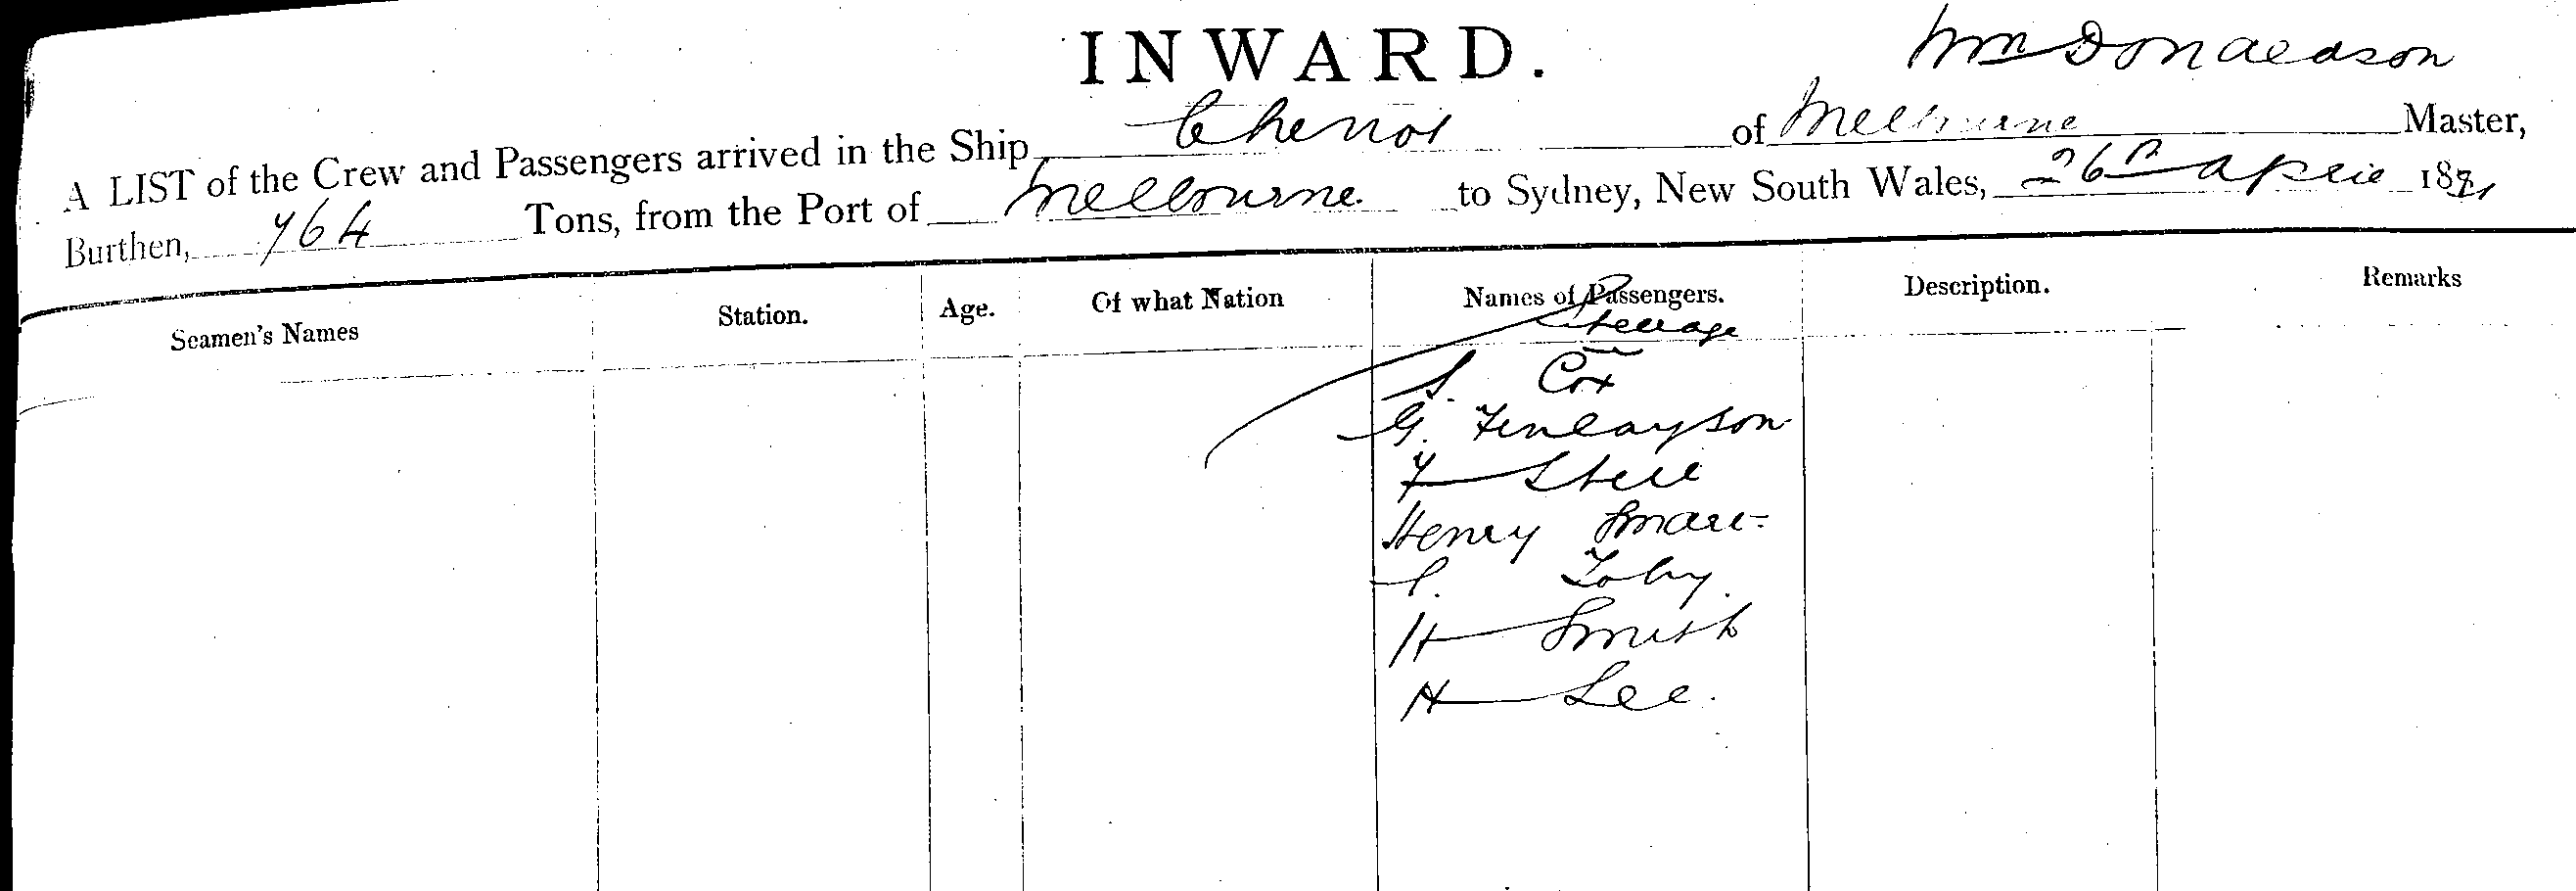 INWARD.
Wm Donaldson
A LIST of the Crew and Passengers arrived in the Ship Cheviot of Melbourne Master,
Burthen, 764 Tons, from the Port of Melbourne to Sydney, New South Wales, 26th April 18
Seamen's Names Station. Age. Of what Nation Names of Passengers. Description. Remarks
Steerage
S. Cox
G. Finlayson
F Steel
Henry Smart
Toby
H Smith
H Lee.